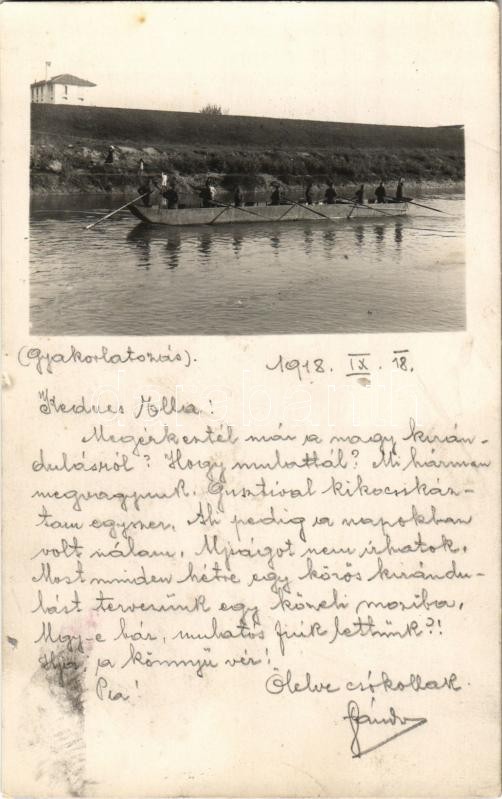 (Gyakorlatozás).
1918. IX. 18.
Kedves Olla!
Megérkeztél már a nagy kirán-
dulásról? Hogy mulattál? Mi hárman
megvagyunk. Gusztival kikocsikáz-
tam egyszer, pedig a napokban
volt nálam. Ujságot nem írhatok.
Most minden hétre egy közös kirándu-
lást tervezünk egy közeli moziba.
Ugy-e bár, mulatós fiúk lettünk?!
Hja, a könnyű vér!
Pia!
Ölelve csókollak
Sándor